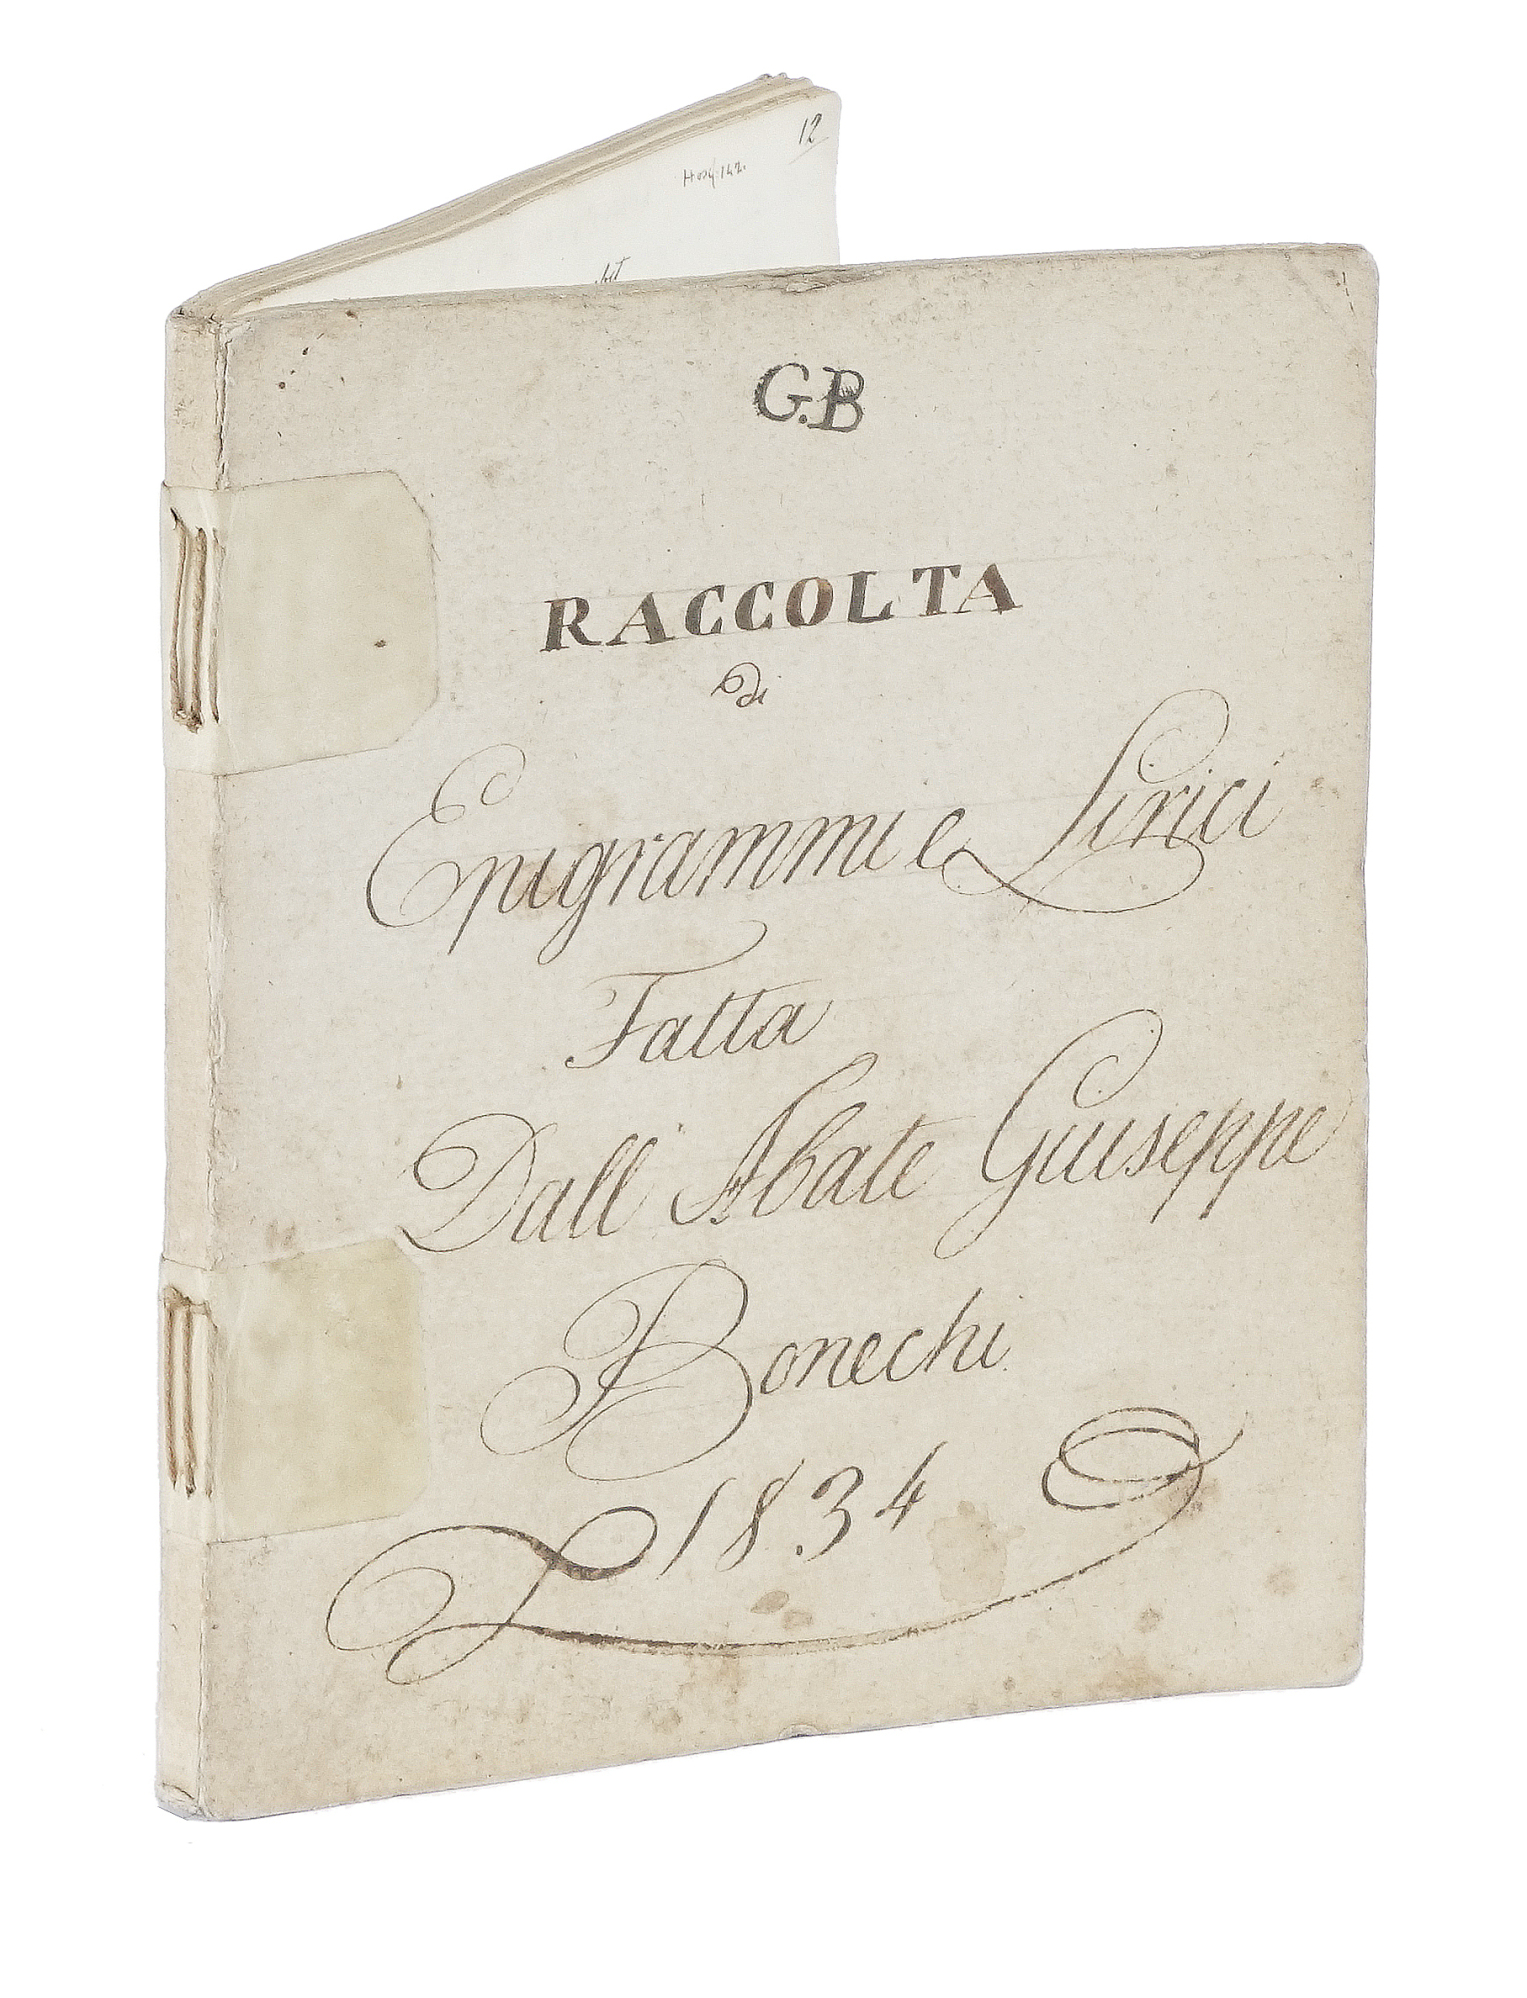 12
G.B
RACCOLTA
di
Epigrammi e Lirici
Fatta
Dall' Abate Giuseppe
Bonechi
1834